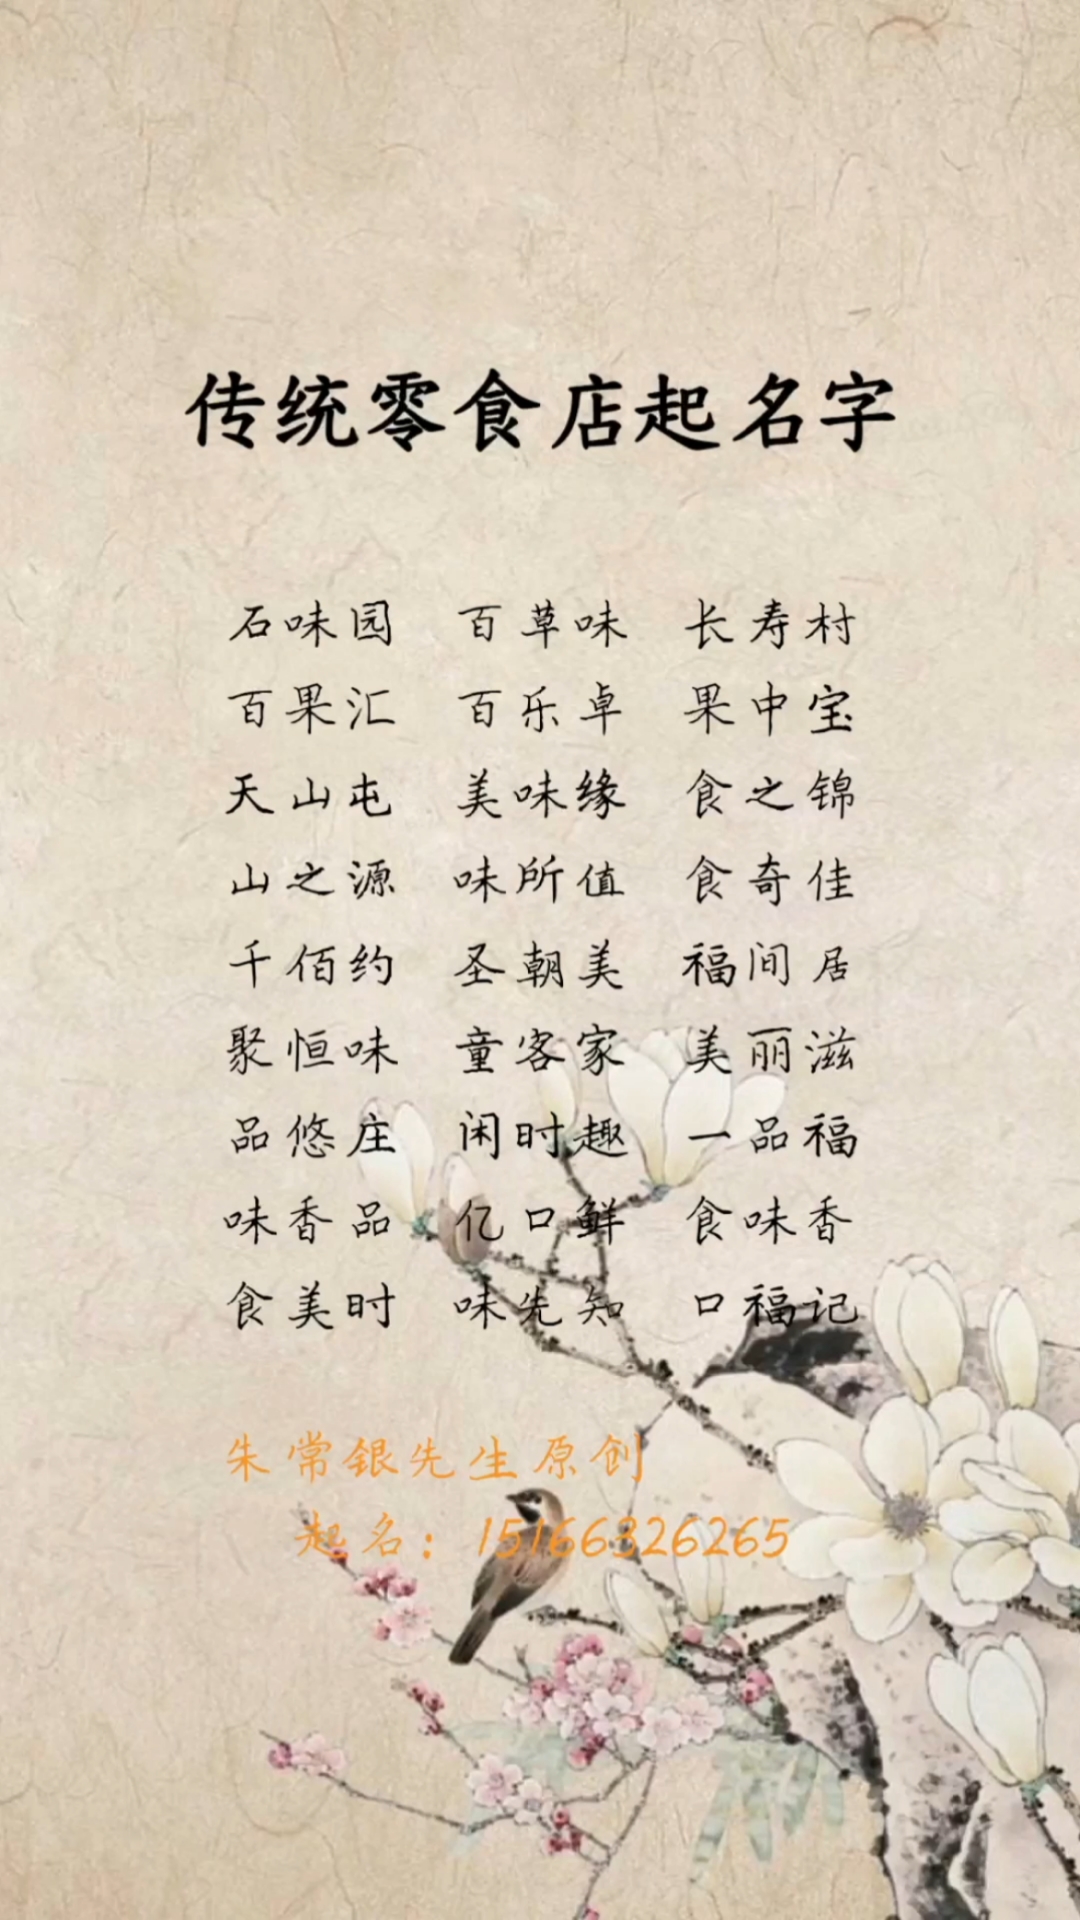 传统零食店起名字
石味园 百草味 长寿村
百果汇 百乐卓 果中宝
天山屯 美味缘 食之锦
山之源 味所值 食奇佳
千佰约 圣朝美 福间居
聚恒味 童客家 美丽滋
品悠庄 闲时趣 一品福
味香品 亿口鲜 食味香
食美时 味先知 口福记
朱常银先生原创
起名：15166326265